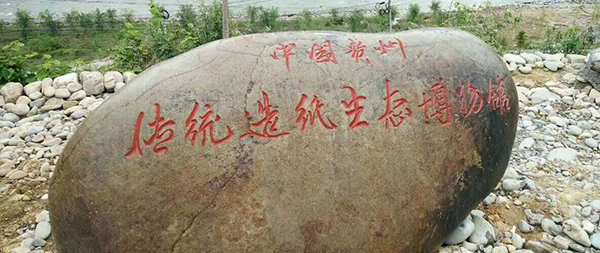 中国贵州
传统造纸生态博物馆